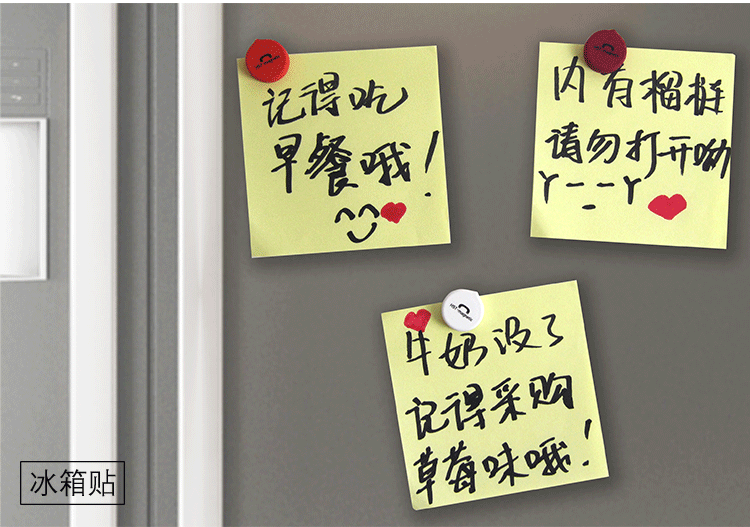 记得吃
早餐哦！
内有榴梿
请勿打开呦
Y－－Y
牛奶没了
记得采购
草莓味哦！
冰箱贴